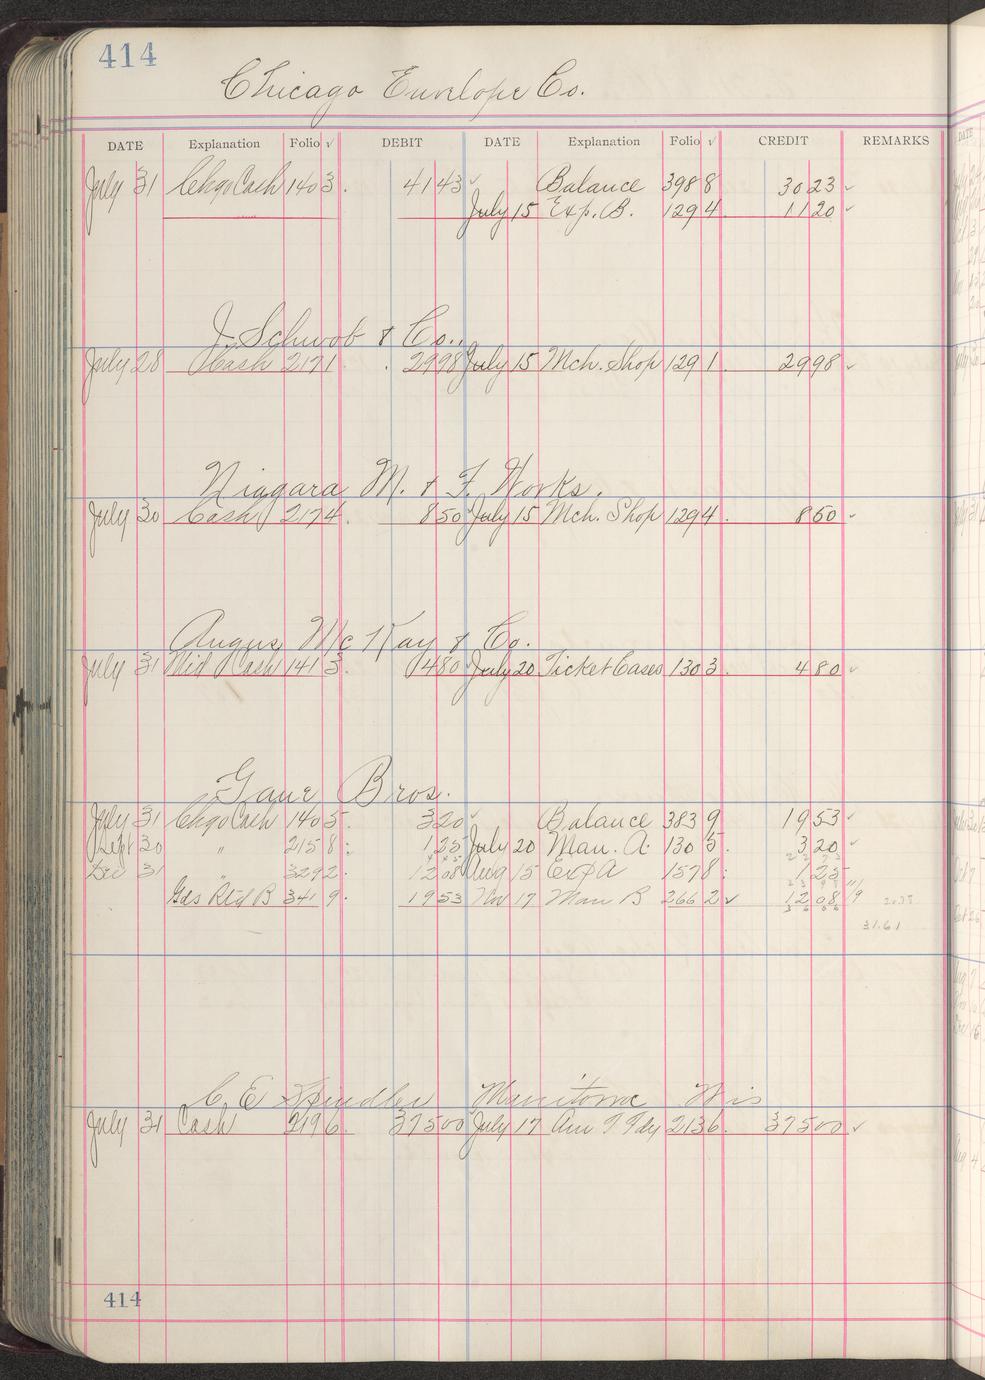 414
Chicago Envelope Co.
DATE Explanation Folio √ DEBIT DATE Explanation Folio √ CREDIT REMARKS
July 31 Chgo Cash 140 3 41 43 ✓ Balance 398 8 30 23 ✓
July 15 Exp. B. 129 4 11 20 ✓
J. Schwob & Co.
July 28 Cash 217 1 29 98 July 15 Mch. Shop 129 1 29 98 ✓
Niagara M. & F. Works.
July 30 Cash 217 4 8 50 July 15 Mch. Shop 129 4 8 50 ✓
Angus, Mc Kay & Co.
July 31 Mid Cash 141 3 4 80 July 20 Ticket Cases 130 3 4 80 ✓
Gane Bros.
July 31 Chgo Cash 140 5 3 20 ✓ Balance 383 9 19 53 ✓
Sept 30 " 215 8 1 25 July 20 Man. A. 130 5 3 20 ✓
Dec 31 " 329 2 12 08 Aug 15 Ex A 157 8 1 25
Gds Rtd B 341 9 19 53 Nov 17 Man B 266 2 ✓ 12 08
31.61
C E Spindler Manitowoc Wis
July 31 Cash 219 6 375 00 July 17 213 6 375 00 ✓
414